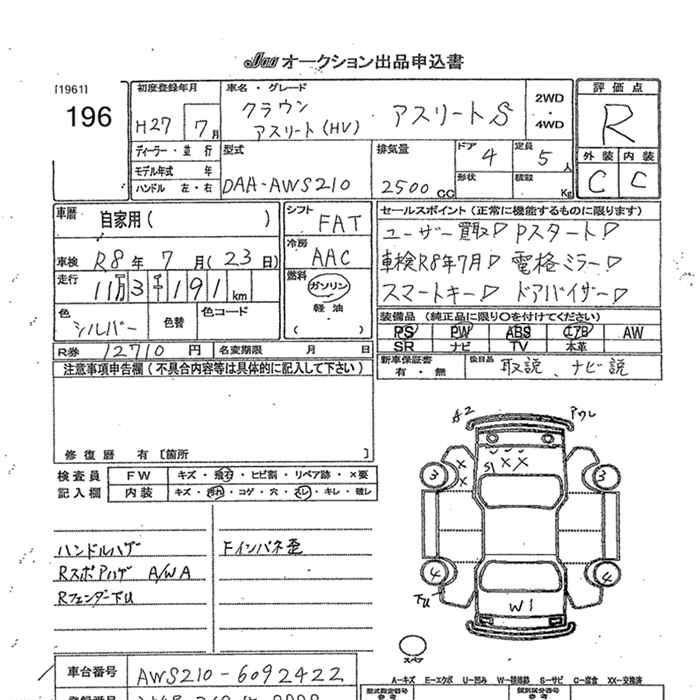 JAA オークション出品申込書
[1961]
196
初度登録年月
H27 7月
車名・グレード
クラウン
アスリート(HV) アスリートS
2WD
・
4WD
評価点
R
外装 内装
C C
ディーラー・並行
モデル年式 年
ハンドル 左・右
型式
DAA-AWS210
排気量
2500 CC
ドア 4
定員 5人
形状
積載 Kg
車歴 自家用( )
車検 R8年 7月(23日)
走行 11万3千191km
色 シルバー
色替
色コード
シフト FAT
冷房 AAC
燃料
ガソリン
軽油
( )
セールスポイント(正常に機能するものに限ります)
ユーザー買取 Pスタート
車検R8年7月 電格ミラー
スマートキー ドアバイザー
装備品(純正品に限り○を付けてください)
PS PW ABS エアB AW
SR ナビ TV 本革
R券 12710円 名変期限 月 日
新車保証書
有・無
後日品 取説、ナビ説
注意事項申告欄(不具合内容等は具体的に記入して下さい)
修復歴 有[箇所 ]
検査員
記入欄
FW キズ・飛石・ヒビ割・リペア跡・×要
内装 キズ・汚れ・コゲ・穴・スレ・キレ・破レ
ハンドルハゲ
Rスポアハゲ A/WA
Rフェンダー下U
Fインパネ歪
A2
アウレ
S1
××
×
×
3
3
4
4
下U
W1
スペア
A-キズ E-エクボ U-凹み W-補修跡 S-サビ C-腐食 XX-交換済
車台番号 AWS210-6092422
登録番号
型式指定番号
類別区分番号